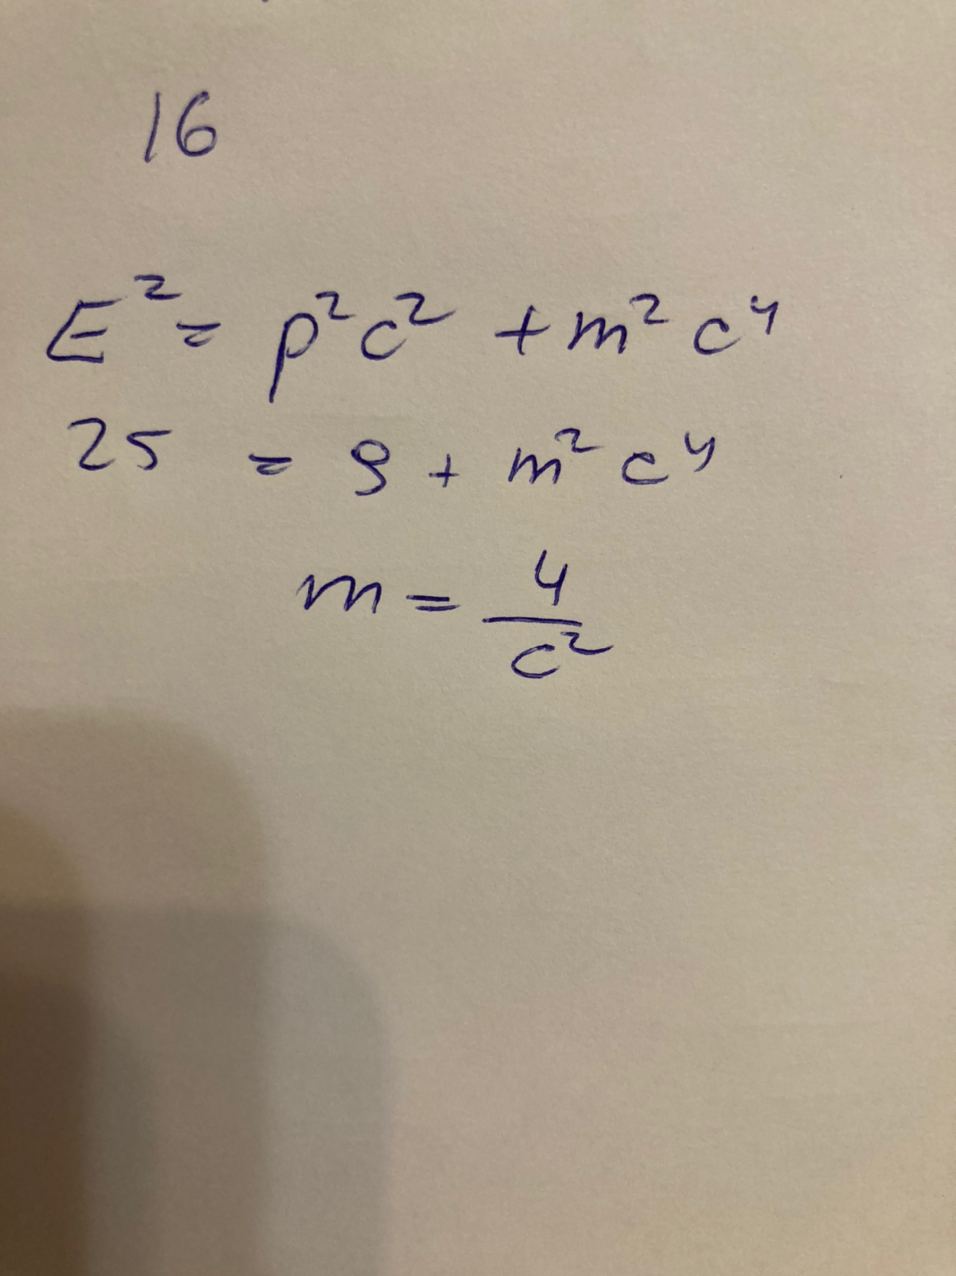 16
E² = p²c² + m²c⁴
25 = 9 + m²c⁴
m = 4/c²